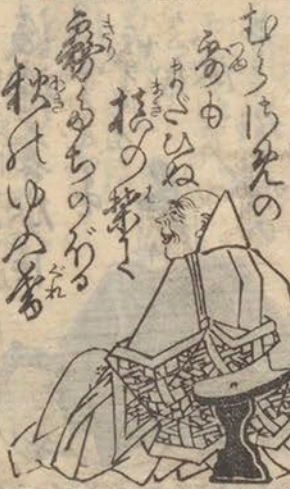 むらさめの
露も
まだひぬ
槙の葉に
霧たちのぼる
秋のゆふ暮